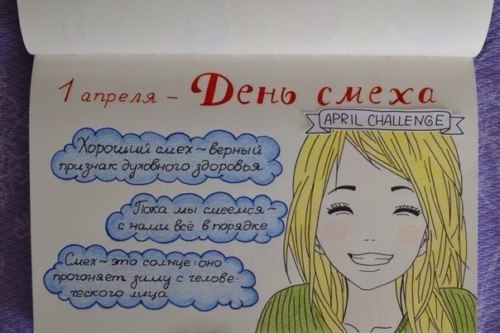 1 апреля – День смеха
APRIL CHALLENGE
Хороший смех ~ верный
признак духовного здоровья
Пока мы смеемся ~
с нами всё в порядке
Смех ~ это солнце: оно
прогоняет зиму с челове-
ческого лица